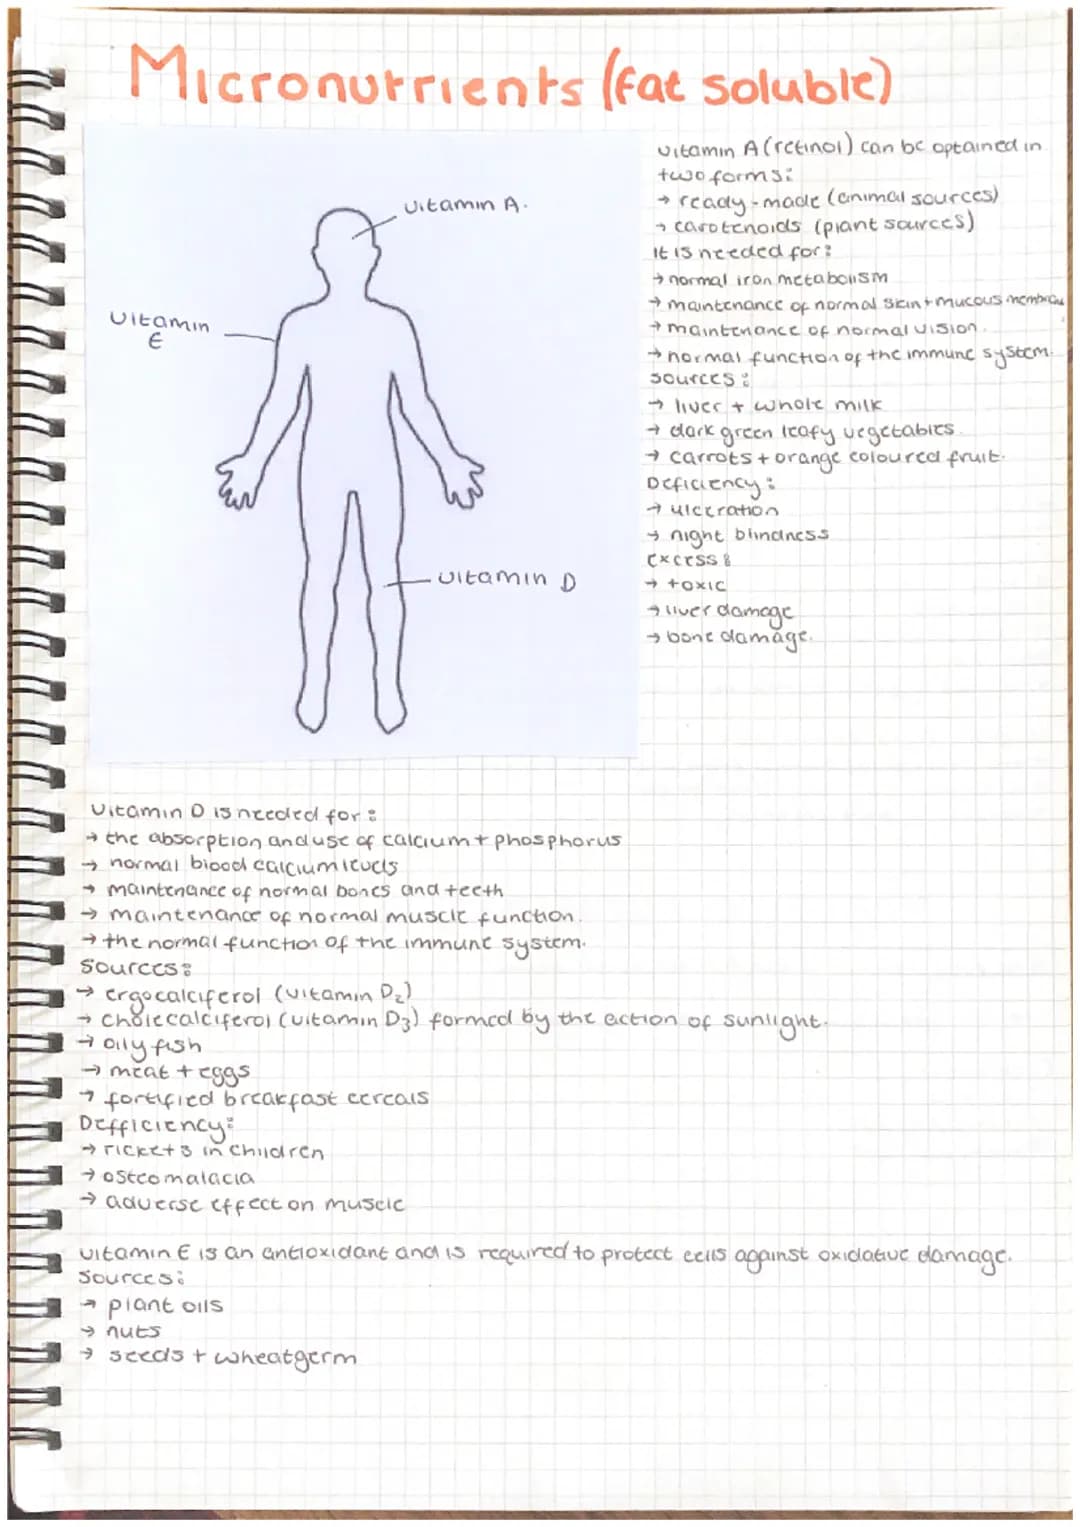 Micronutrients (fat soluble)
vitamin A.
Vitamin
E
vitamin D
vitamin A (retinol) can be optained in
two forms:
→ ready-made (animal sources)
→ carotenoids (plant sources)
It is needed for:
→ normal iron metabolism
→ maintenance of normal skin + mucous membrau
→ maintenance of normal vision.
→ normal function of the immune system.
sources:
→ liver + whole milk
→ dark green leafy vegetables.
→ carrots + orange coloured fruit.
Deficiency:
→ ulceration
→ night blindness
Excess:
→ toxic
→ liver damage
→ bone damage.
Vitamin D is needed for:
→ the absorption and use of calcium + phosphorus
→ normal blood calcium levels
→ maintenance of normal bones and teeth
→ maintenance of normal muscle function.
→ the normal function of the immune system.
Sources:
→ ergocalciferol (vitamin D₂)
→ cholecalciferol (vitamin D₃) formed by the action of sunlight.
→ oily fish
→ meat + eggs
→ fortified breakfast cereals
Defficiency:
→ rickets in children
→ osteomalacia
→ adverse effect on muscle
vitamin E is an antioxidant and is required to protect cells against oxidative damage.
Sources:
→ plant oils
→ nuts
→ seeds + wheatgerm